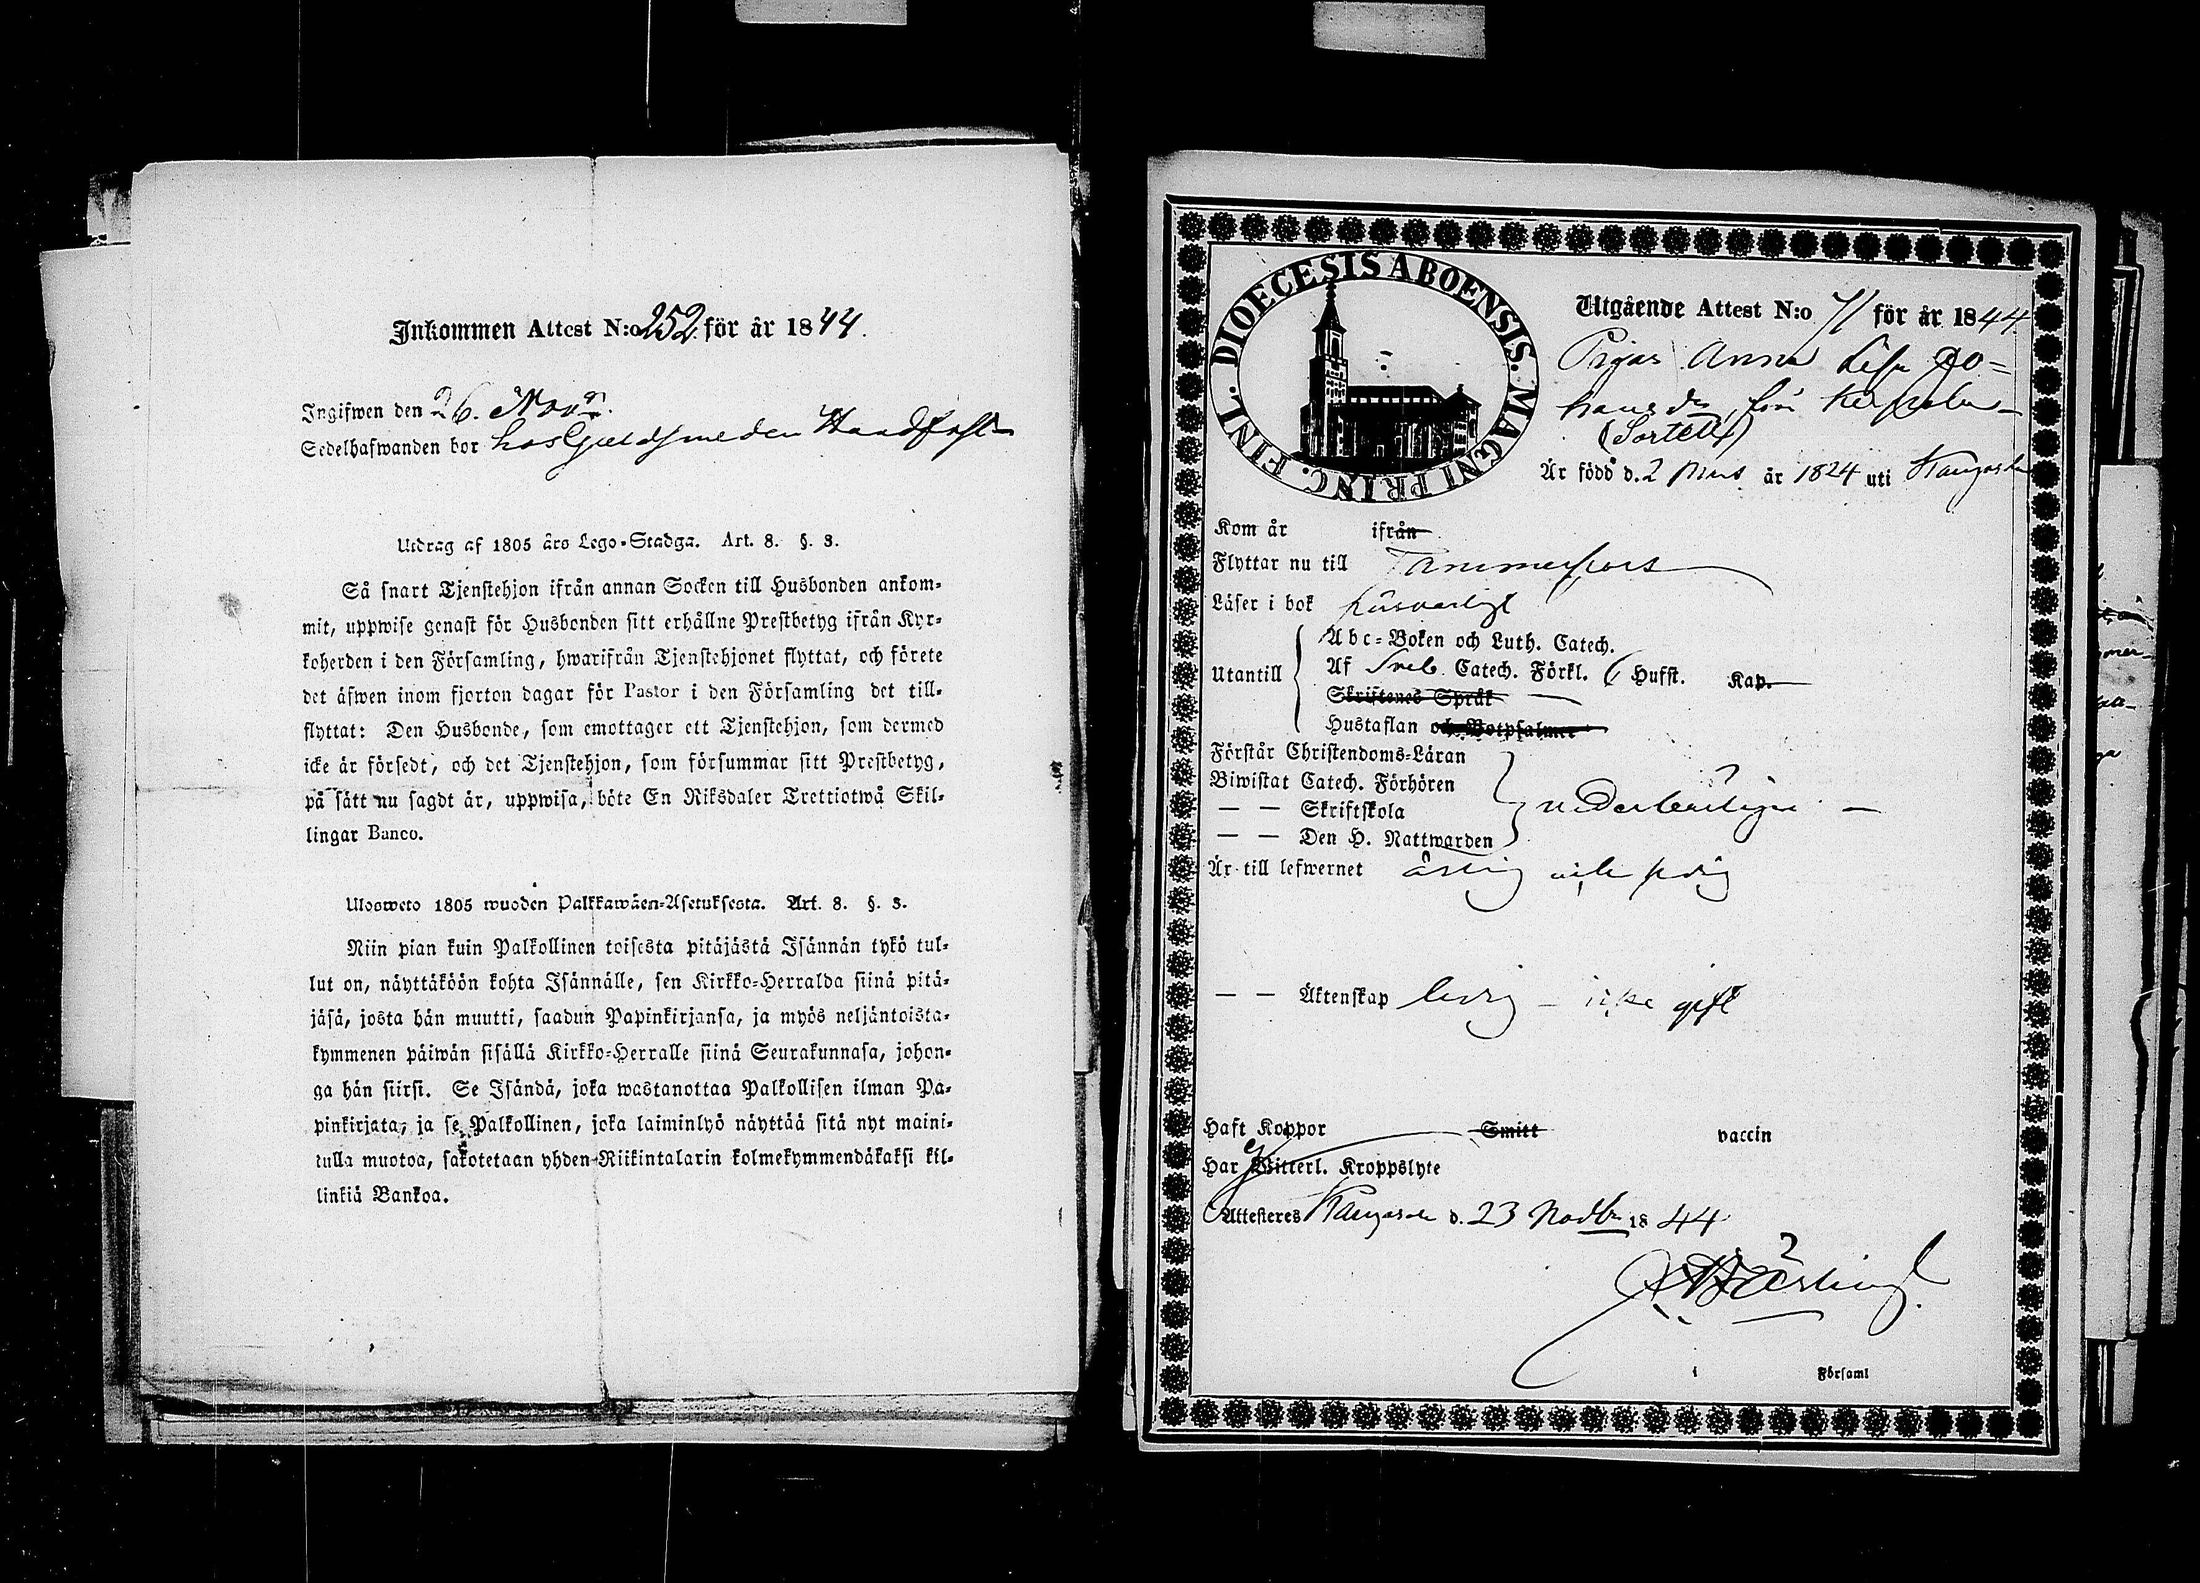 Inkommen Attest N:o 252. för år 1844.
Ingifwen den 26. Novr.
Sedelhafwanden bor hos Guldsmeden Handfast
Utdrag af 1805 års Lego-Stadga. Art. 8. §. 3.
Så snart Tjenstehjon ifrån annan Socken till Husbonden ankom-
mit, uppwise genast för Husbonden sitt erhållne Prestbetyg ifrån Kyr-
koherden i den Församling, hwarifrån Tjenstehjonet flyttat, och förete
det äfwen inom fjorton dagar för Pastor i den Församling det till-
flyttat: Den Husbonde, som emottager ett Tjenstehjon, som dermed
icke är försedt, och det Tjenstehjon, som försummar sitt Prestbetyg,
på sätt nu sagdt är, uppwisa, böte En Riksdaler Trettiotwå Skil-
lingar Banco.
Ulosweto 1805 wuoden Palkkawäen-Asetuksesta. Art. 8. §. 3.
Niin pian kuin Palkollinen toisesta pitäjästä Isännän tykö tul-
lut on, näyttäköön kohta Isännälle, sen Kirkko-Herralda siinä pitä-
jäsä, josta hän muutti, saadun Papinkirjansa, ja myös neljäntoista-
kymmenen päiwän sisällä Kirkko-Herralle siinä Seurakunnasa, johon-
ga hän siirsi. Se Isändä, joka wastanottaa Palkollisen ilman Pa-
pinkirjata, ja se Palkollinen, joka laiminlyö näyttää sitä nyt maini-
tulla muotoa, sakotetaan yhden Riikintalarin kolmekymmendäkaksi kil-
linkiä Bankoa.
DIOECESIS ABOENSIS. MAGNI PRINC. FINL.
Utgående Attest N:o 71 för år 1844.
Pigan Anna Lisa Jo=
hansdr från
(Sortell)
Är född d. 2 Mars år 1824 uti Kangasala
Kom år ifrån
Flyttar nu till Tammerfors
Läser i bok försvarligt
Utantill
Abc-Boken och Luth. Catech.
Af Sveb. Catech. Förkl. 6 Hufst. Kap.
Skriftenes Språk
Hustaflan och Botpsalmer
Förstår Christendoms-Läran
Biwistat Catech. Förhören
— — Skriftskola
— — Den H. Nattwarden
vederbörligen
Är till lefwernet ärlig och frejdig
— — Äktenskap ledig – icke gift
Haft Koppor Smitt vaccin
Har Witterl. Kroppslyte
Attesteres Kangasala d. 23 Novbr 1844
i Församl